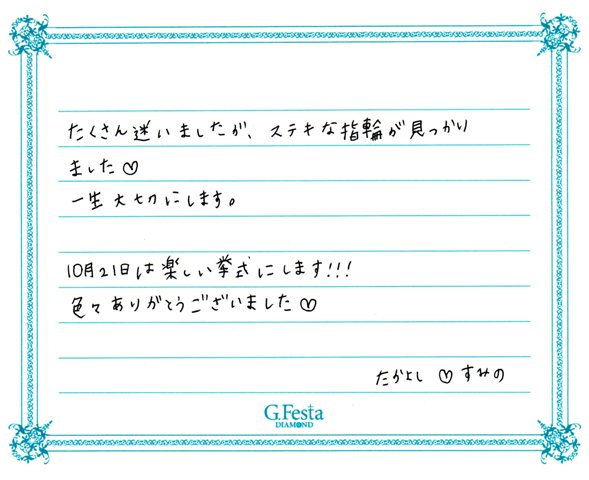 たくさん迷いましたが、ステキな指輪が見つかり
ました♡
一生大切にします。
10月21日は楽しい挙式にします!!!
色々ありがとうございました♡
たかよし ♡ すみの
G.Festa
DIAMOND